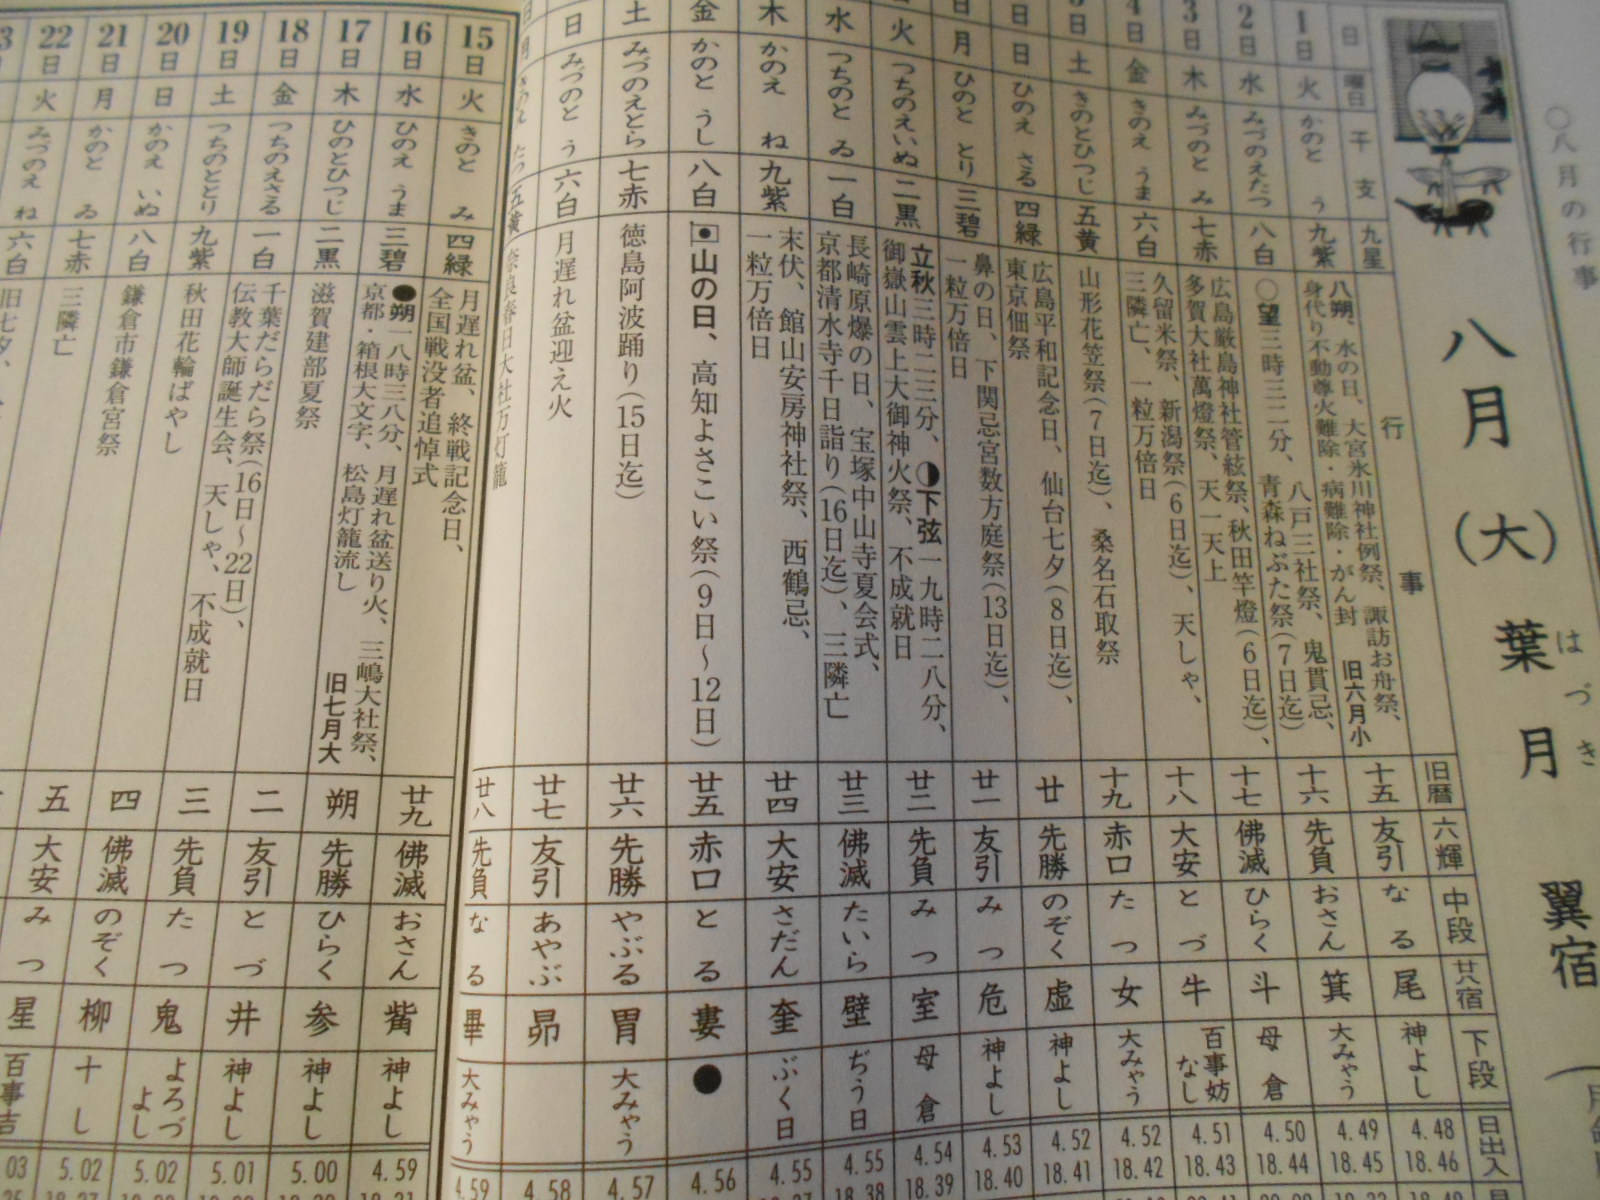 ○八月の行事
八月(大) 葉月 翼宿
はづき
日 曜日 干支 九星 行事 旧暦 六輝 中段 廿八宿 下段 日出入
1日 火 かのと う 九紫 八朔、水の日、大宮氷川神社例祭、諏訪お舟祭、
身代り不動尊火難除・病難除・がん封 旧六月小 十五 友引 なる 尾 神よし 4.48 18.46
2日 水 みづのえたつ 八白 ○望三時三二分、八戸三社祭、鬼貫忌、
青森ねぶた祭(7日迄) 十六 先負 おさん 箕 大みゃう 4.49 18.45
3日 木 みづのと み 七赤 広島厳島神社管絃祭、秋田竿燈(6日迄)、
多賀大社萬燈祭、天一天上 十七 佛滅 ひらく 斗 母倉 4.50 18.44
4日 金 きのえ うま 六白 久留米祭、新潟祭(6日迄)、天しゃ、
三隣亡、一粒万倍日 十八 大安 とづ 牛 百事妨なし 4.51 18.43
5日 土 きのとひつじ 五黄 山形花笠祭(7日迄)、桑名石取祭 十九 赤口 たつ 女 大みゃう 4.52 18.42
日 日 ひのえ さる 四緑 広島平和記念日、仙台七夕(8日迄)、
東京佃祭 廿 先勝 のぞく 虚 神よし 4.52 18.41
日 月 ひのと とり 三碧 鼻の日、下関忌宮数方庭祭(13日迄)、
一粒万倍日 廿一 友引 みつ 危 神よし 4.53 18.40
火 つちのえいぬ 二黒 立秋三時二三分、◑下弦一九時二八分、
御嶽山雲上大御神火祭、不成就日 廿二 先負 みつ 室 母倉 4.54 18.39
水 つちのと ゐ 一白 長崎原爆の日、宝塚中山寺夏会式、
京都清水寺千日詣り(16日迄)、三隣亡 廿三 佛滅 たいら 壁 ぢう日 4.55 18.38
木 かのえ ね 九紫 末伏、館山安房神社祭、西鶴忌、
一粒万倍日 廿四 大安 さだん 奎 ぶく日 4.55
金 かのと うし 八白 山の日、高知よさこい祭(9日〜12日) 廿五 赤口 とる 婁 ● 4.56
土 みづのえとら 七赤 徳島阿波踊り(15日迄) 廿六 先勝 やぶる 胃 大みゃう 4.57
日 みづのと う 六白 月遅れ盆迎え火 廿七 友引 あやぶ 昴 4.58
月 きのえ たつ 五黄 奈良春日大社万灯籠 廿八 先負 なる 畢 大みゃう 4.59
15日 火 きのと み 四緑 月遅れ盆、終戦記念日、
全国戦没者追悼式 廿九 佛滅 おさん 觜 神よし 4.59
16日 水 ひのえ うま 三碧 ●朔一八時三八分、月遅れ盆送り火、三嶋大社祭、
京都・箱根大文字、松島灯籠流し 旧七月大 朔 先勝 ひらく 参 神よし 5.00
17日 木 ひのとひつじ 二黒 滋賀建部夏祭 二 友引 とづ 井 神よし 5.01
18日 金 つちのえさる 一白 千葉だらだら祭(16日〜22日)、
伝教大師誕生会、天しゃ、不成就日 三 先負 たつ 鬼 よろづよし 5.02
19日 土 つちのととり 九紫 秋田花輪ばやし 四 佛滅 のぞく 柳 十し 5.02
20日 日 かのえ いぬ 八白 鎌倉市鎌倉宮祭 五 大安 みつ 星 百事吉 03
21日 月 かのと ゐ 七赤 三隣亡
22日 火 みづのえ ね 六白 旧七夕、